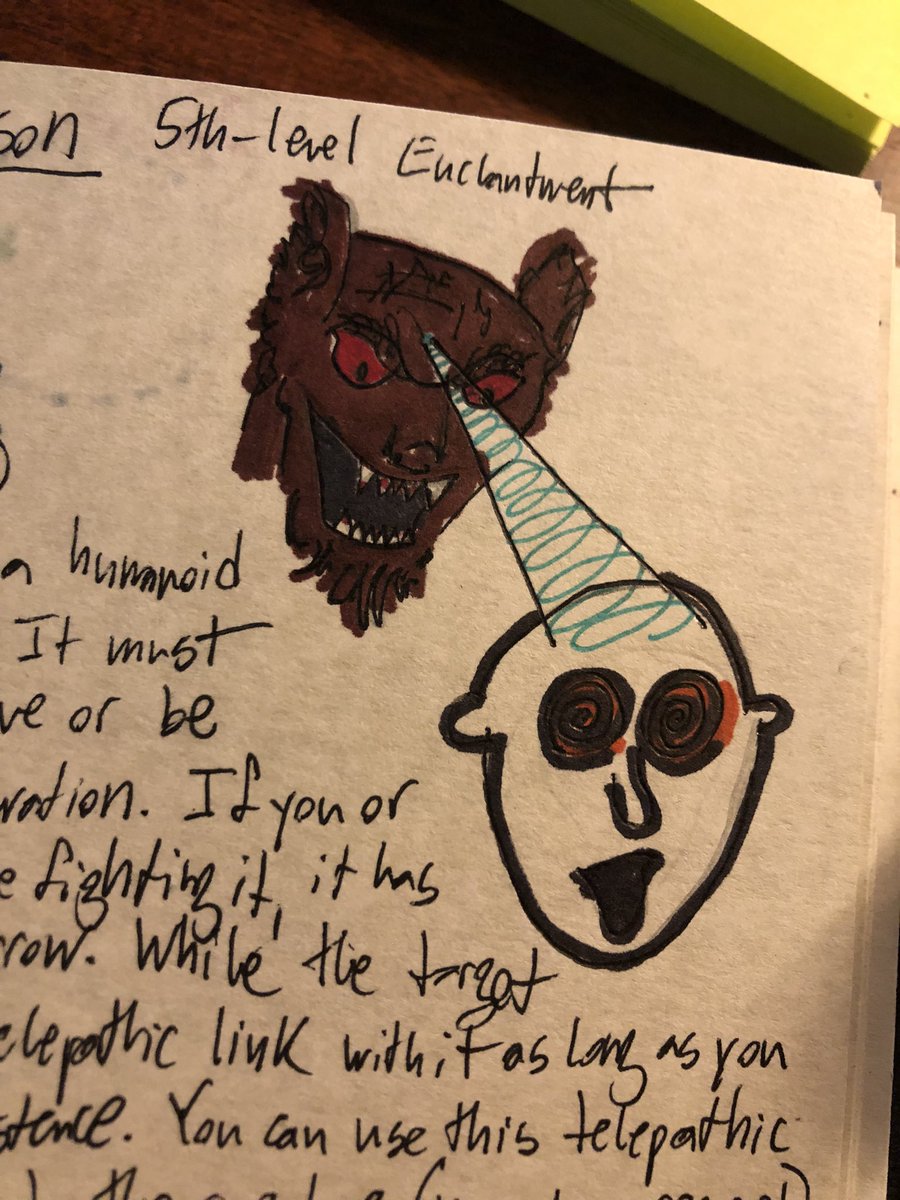 son 5th-level Enchantment
a humanoid
It must
ve or be
ration. If you or
e fighting it, it has
row. While the target
elepathic link with it as long as you
stence. You can use this telepathic